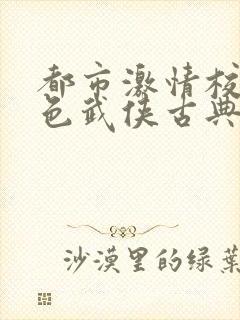 都市激情校
色武侠古典
沙漠里的绿葉